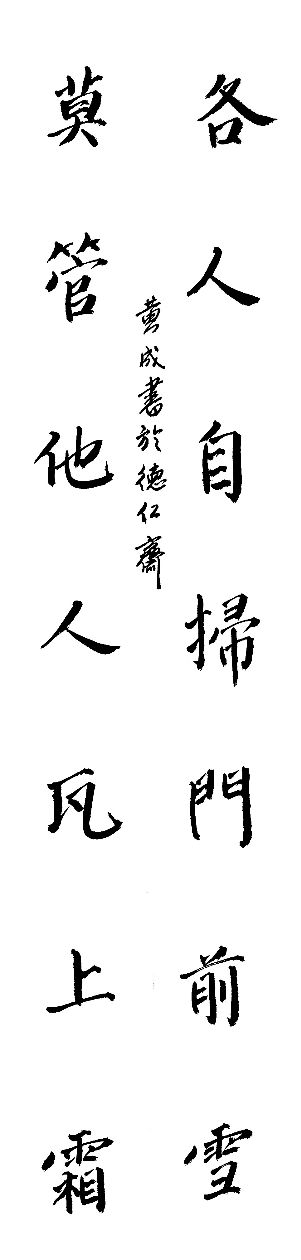 各人自掃門前雪
莫管他人瓦上霜
黄成書於德仁齋